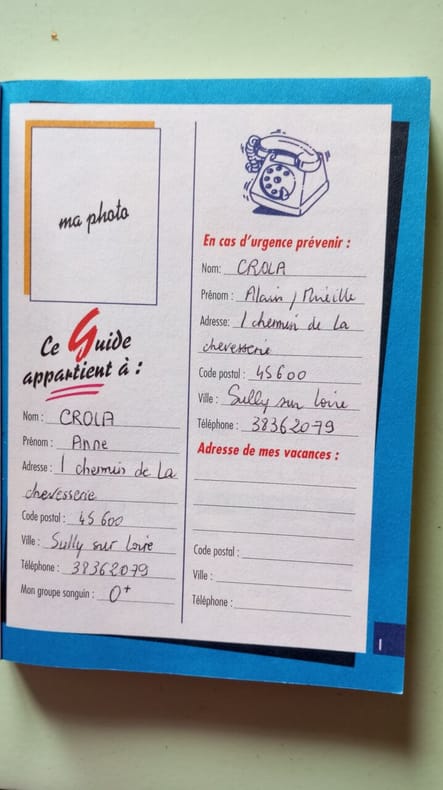 ma photo
Ce Guide
appartient à :
Nom : CROLA
Prénom : Anne
Adresse : 1 chemin de La
chevesserie
Code postal : 45600
Ville : Sully sur Loire
Téléphone : 38362079
Mon groupe sanguin : O+
En cas d'urgence prévenir :
Nom: CROLA
Prénom : Alain / Mireille
Adresse: 1 chemin de La
chevesserie
Code postal : 45600
Ville : Sully sur Loire
Téléphone : 38362079
Adresse de mes vacances :
Code postal :
Ville :
Téléphone :
1